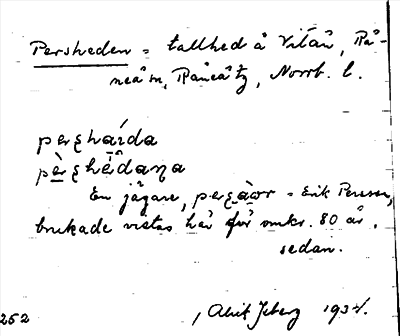 Persheden = tallhed å Vitån, Rå-
neå sn, Råneåtg, Norrb. l.
perʂháida
pɛ̀rʂhēdana
En jägare, = Erik Persson,
brukade vistas här för omkr. 80 år
sedan.
252 1934.